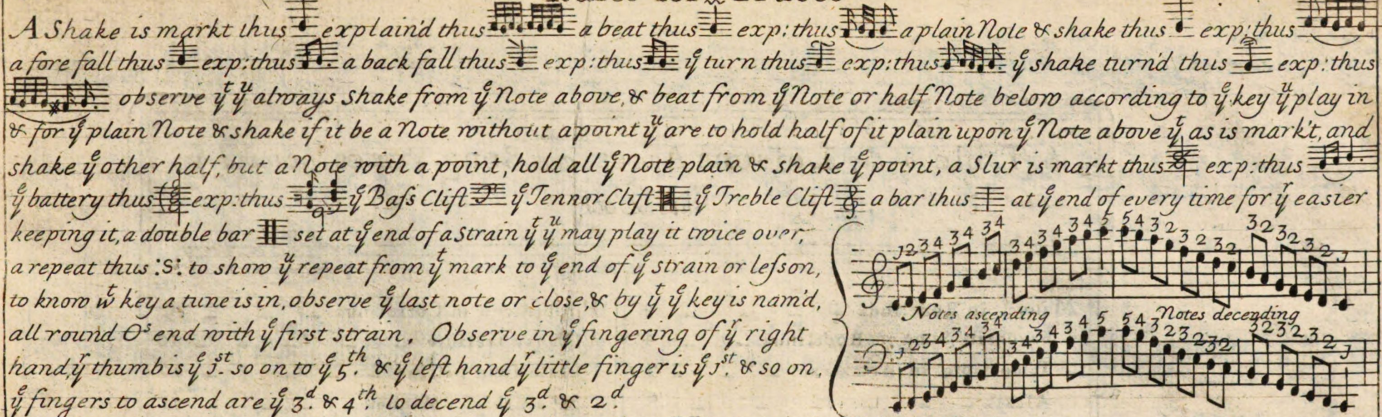 Rules for Graces
A Shake is markt thus explain'd thus a beat thus exp: thus a plain Note & shake thus exp: thus
a fore fall thus exp: thus a back fall thus exp: thus yᵉ turn thus exp: thus yᵉ shake turn'd thus exp: thus
observe yᵗ yᵘ always shake from yᵉ Note above, & beat from yᵉ Note or half Note below according to yᵉ key yᵘ play in
& for yᵉ plain Note & shake if it be a Note without a point yᵘ are to hold half of it plain upon yᵉ Note above yᵗ as is mark't, and
shake yᵉ other half, but a Note with a point, hold all yᵉ Note plain & shake yᵉ point, a Slur is markt thus exp: thus
yᵉ battery thus exp: thus yᵉ Baſs Clift yᵉ Tennor Clift yᵉ Treble Clift a bar thus at yᵉ end of every time for yʳ easier
keeping it, a double bar set at yᵉ end of a Strain yᵗ yᵘ may play it twice over,
a repeat thus :S: to show yᵘ repeat from yᵗ mark to yᵉ end of yᵉ strain or leſson,
to know wᵗ key a tune is in, observe yᵉ last note or close, & by yᵗ yᵉ key is nam'd,
all round Oˢ end with yᵉ first strain. Observe in yᵉ fingering of yʳ right
hand, yʳ thumb is yᵉ 1ˢᵗ. so on to yᵉ 5ᵗʰ. & yᵉ left hand yʳ little finger is yᵉ 1ˢᵗ. & so on,
yᵉ fingers to ascend are yᵉ 3ᵈ. & 4ᵗʰ. to decend yᵉ 3ᵈ. & 2ᵈ.
1 2 3 4 3 4 3 4 3 4 3 4 3 4 5 5 4 3 2 3 2 3 2 3 2 3 2 3 2 1
Notes ascending Notes decending